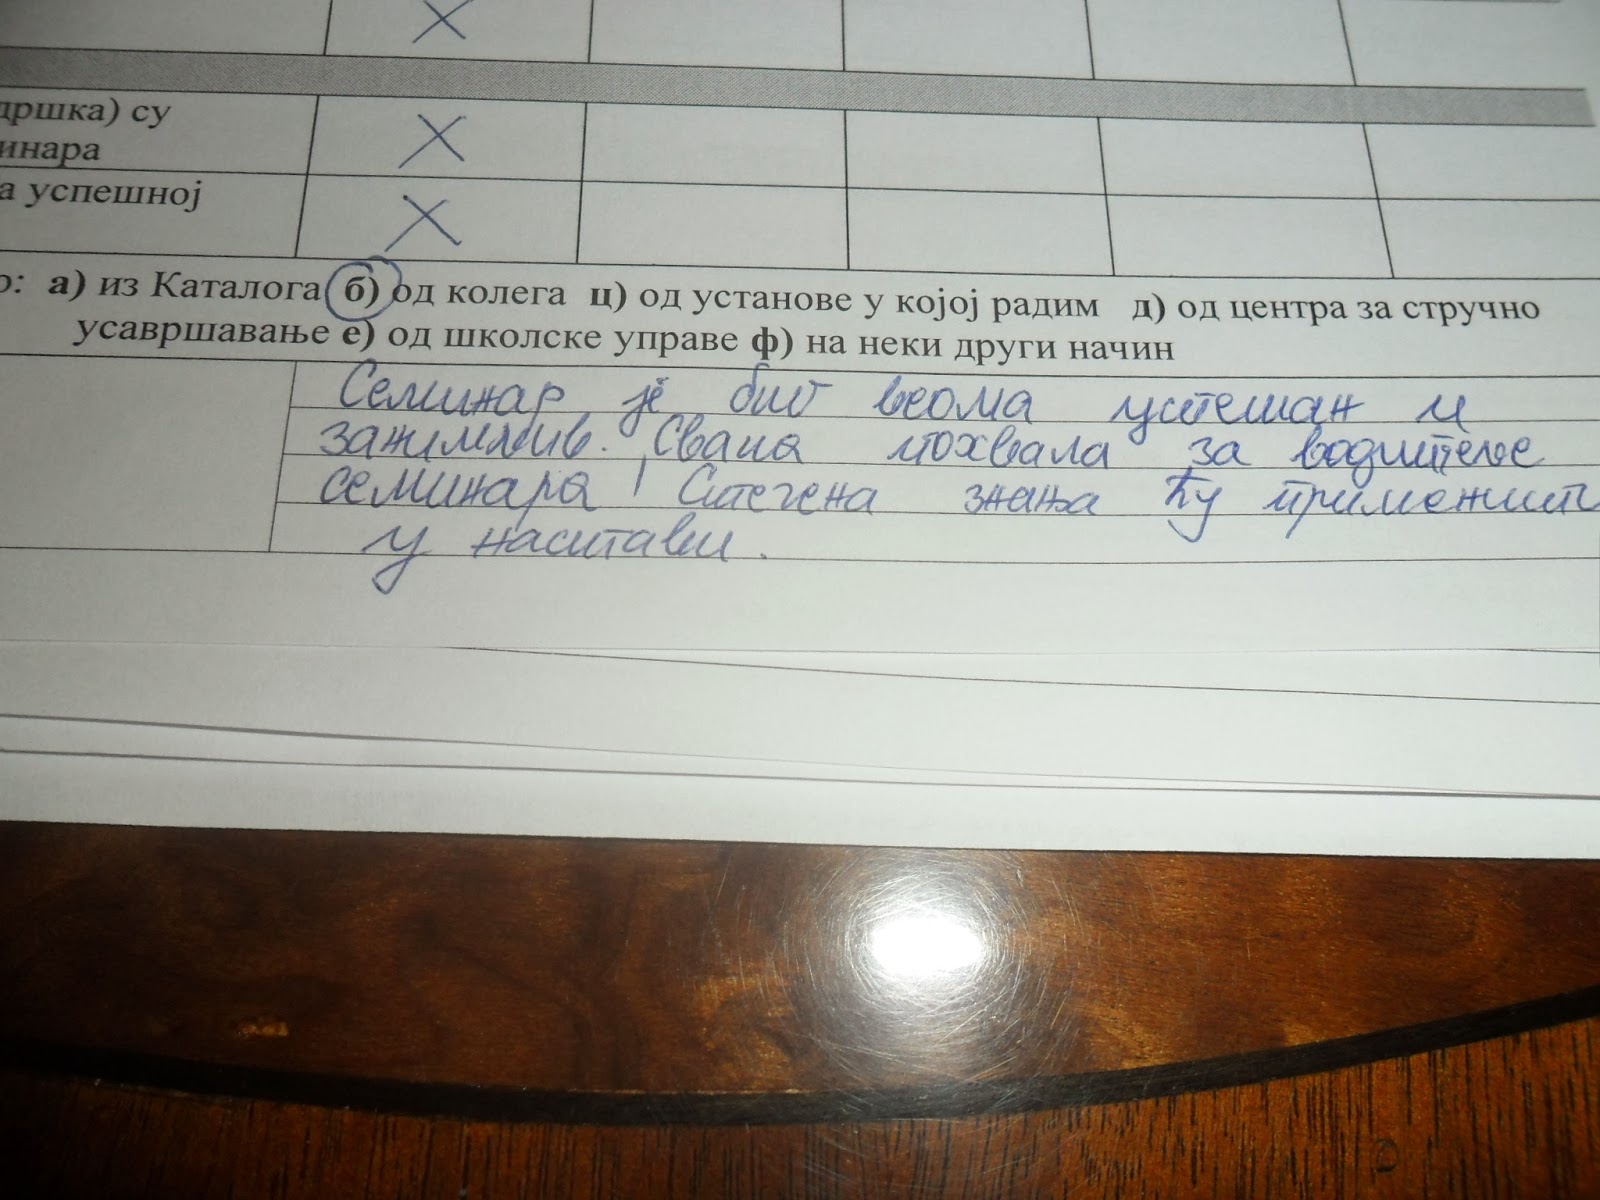 дршка) су
инара
а успешној
о: а) из Каталога б) од колега ц) од установе у којој радим д) од центра за стручно
усавршавање е) од школске управе ф) на неки други начин
Семинар је био веома успешан и
занимљив. Свака похвала за водитеље
семинара! Стечена знања ћу применит
у настави.